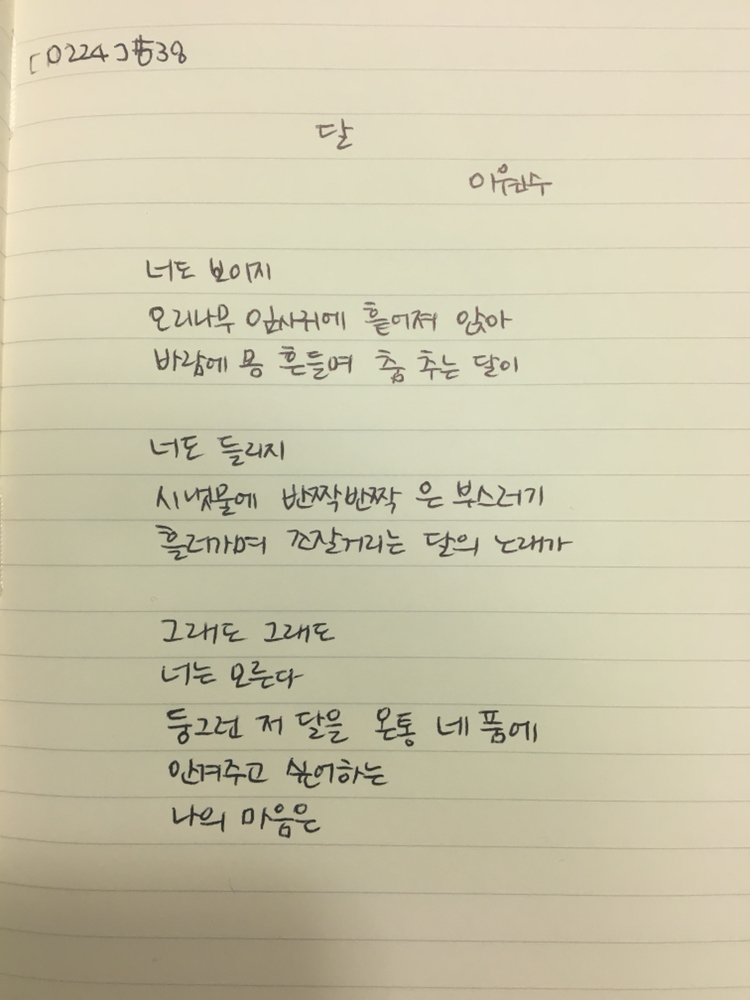 [0224] #38
달
이원수
너도 보이지
오리나무 잎사귀에 흩어져 앉아
바람에 몸 흔들며 춤 추는 달이
너도 들리지
시냇물에 반짝반짝 은 부스러기
흘러가며 조잘거리는 달의 노래가
그래도 그래도
너는 모른다
둥그런 저 달을 온통 네 품에
안겨주고 싶어하는
나의 마음은